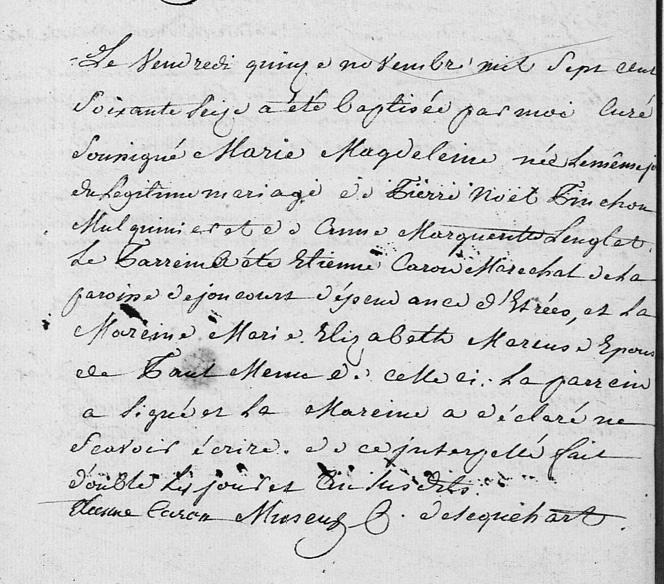 Le Vendredi quinze novembre mil Sept cent
Soixante Seize a été baptisée par moi Curé
Soussigné Marie Magdeleine née Lemême jo
du Legitime mariage de Pierre Noel Pinchon
Mulquinier et de Anne Marguerite Lenglet.
Le Parrein a été Etienne Caron Marechal de La
paroisse dejoncourt dépendance d'Estrées, et La
Mareine Marie Elizabeth Epous
de Paul celleci. La parrein
a Signé et La Mareine a déclaré ne
Scavoir écrire. de ce interpellé fait
double Les jour et an susdits.
Etienne Caron C. delequehart.